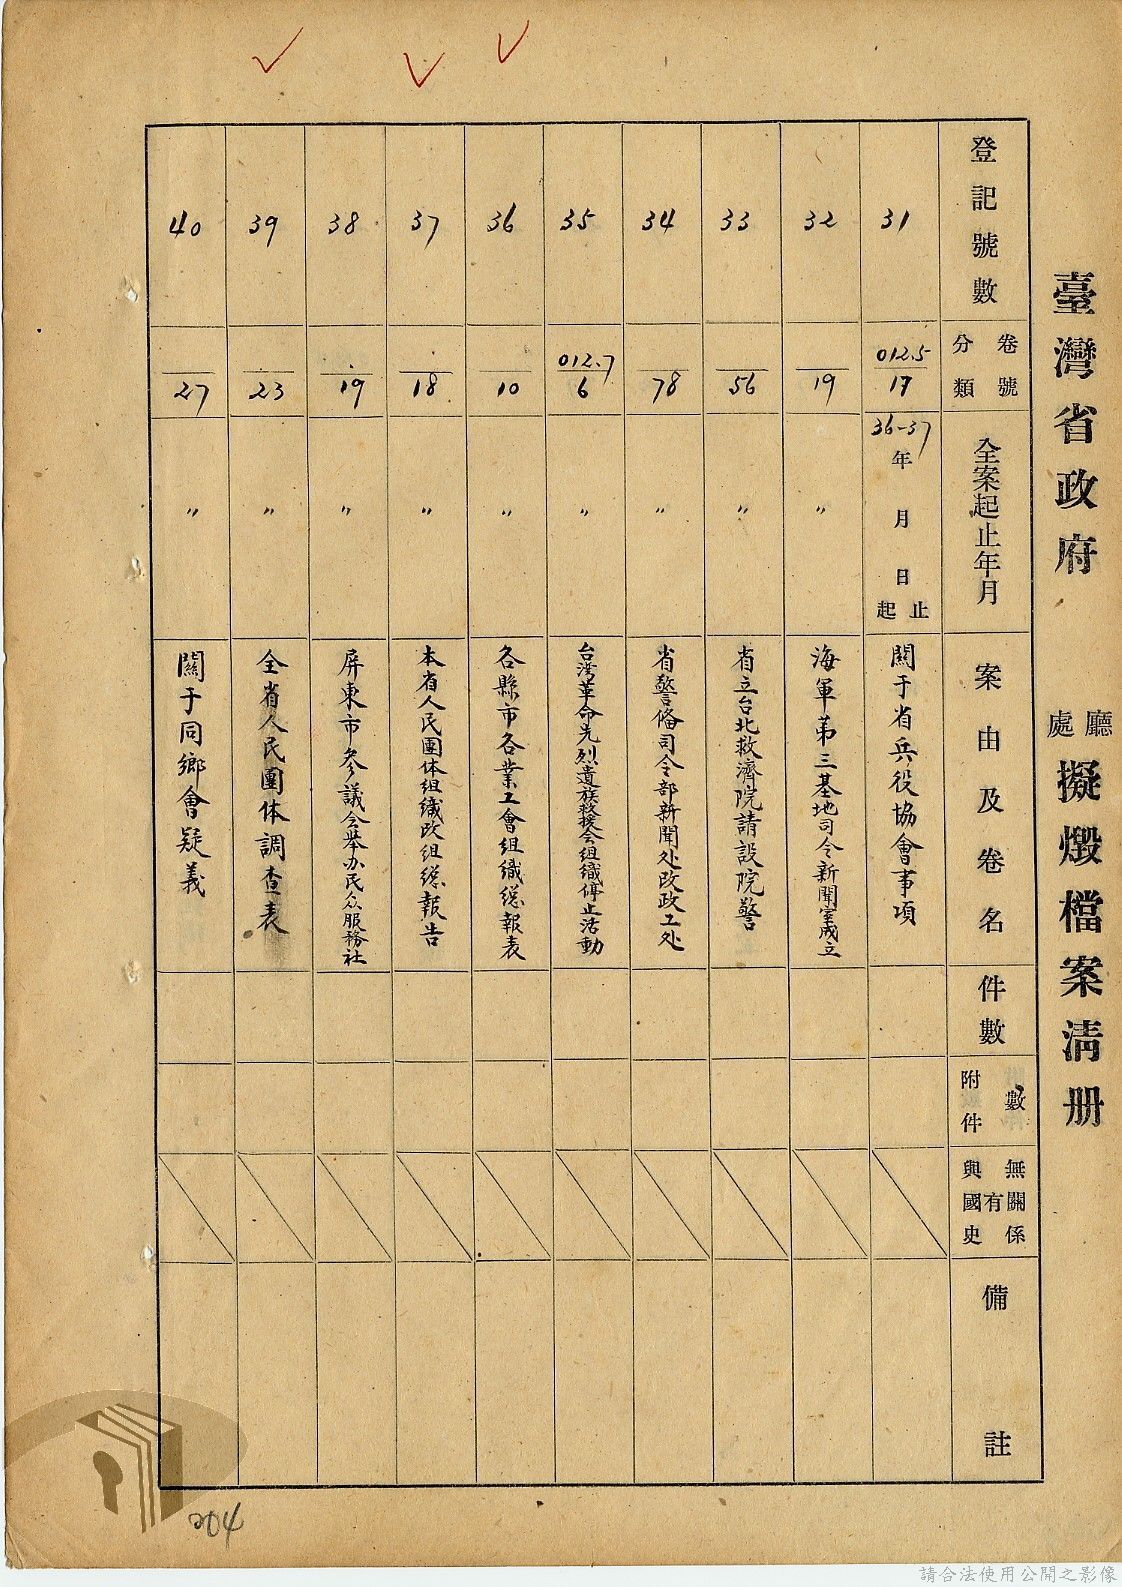 臺灣省政府
廳
處
擬燬檔案清册
登記號數
卷號
分類
全案起止年月
案由及卷名
件數
附件
數
與國史
有
無關係
備註
31
012.5
17
36-37
年
月
日
起
止
關于省兵役協會事項
32
19
〃
海軍第三基地司令新聞室成立
33
56
〃
省立台北救濟院請設院警
34
78
〃
省警備司令部新聞处改政工处
35
012.7
6
〃
台湾革命先烈遺族救援会组織停止活動
36
10
〃
各縣市各業工會组織總報表
37
18
〃
本省人民團体组織改组總報告
38
19
〃
屏東市參議会举办民众服務社
39
23
〃
全省人民團体調查表
40
27
〃
關于同鄉會疑義
204
請合法使用公開之影像